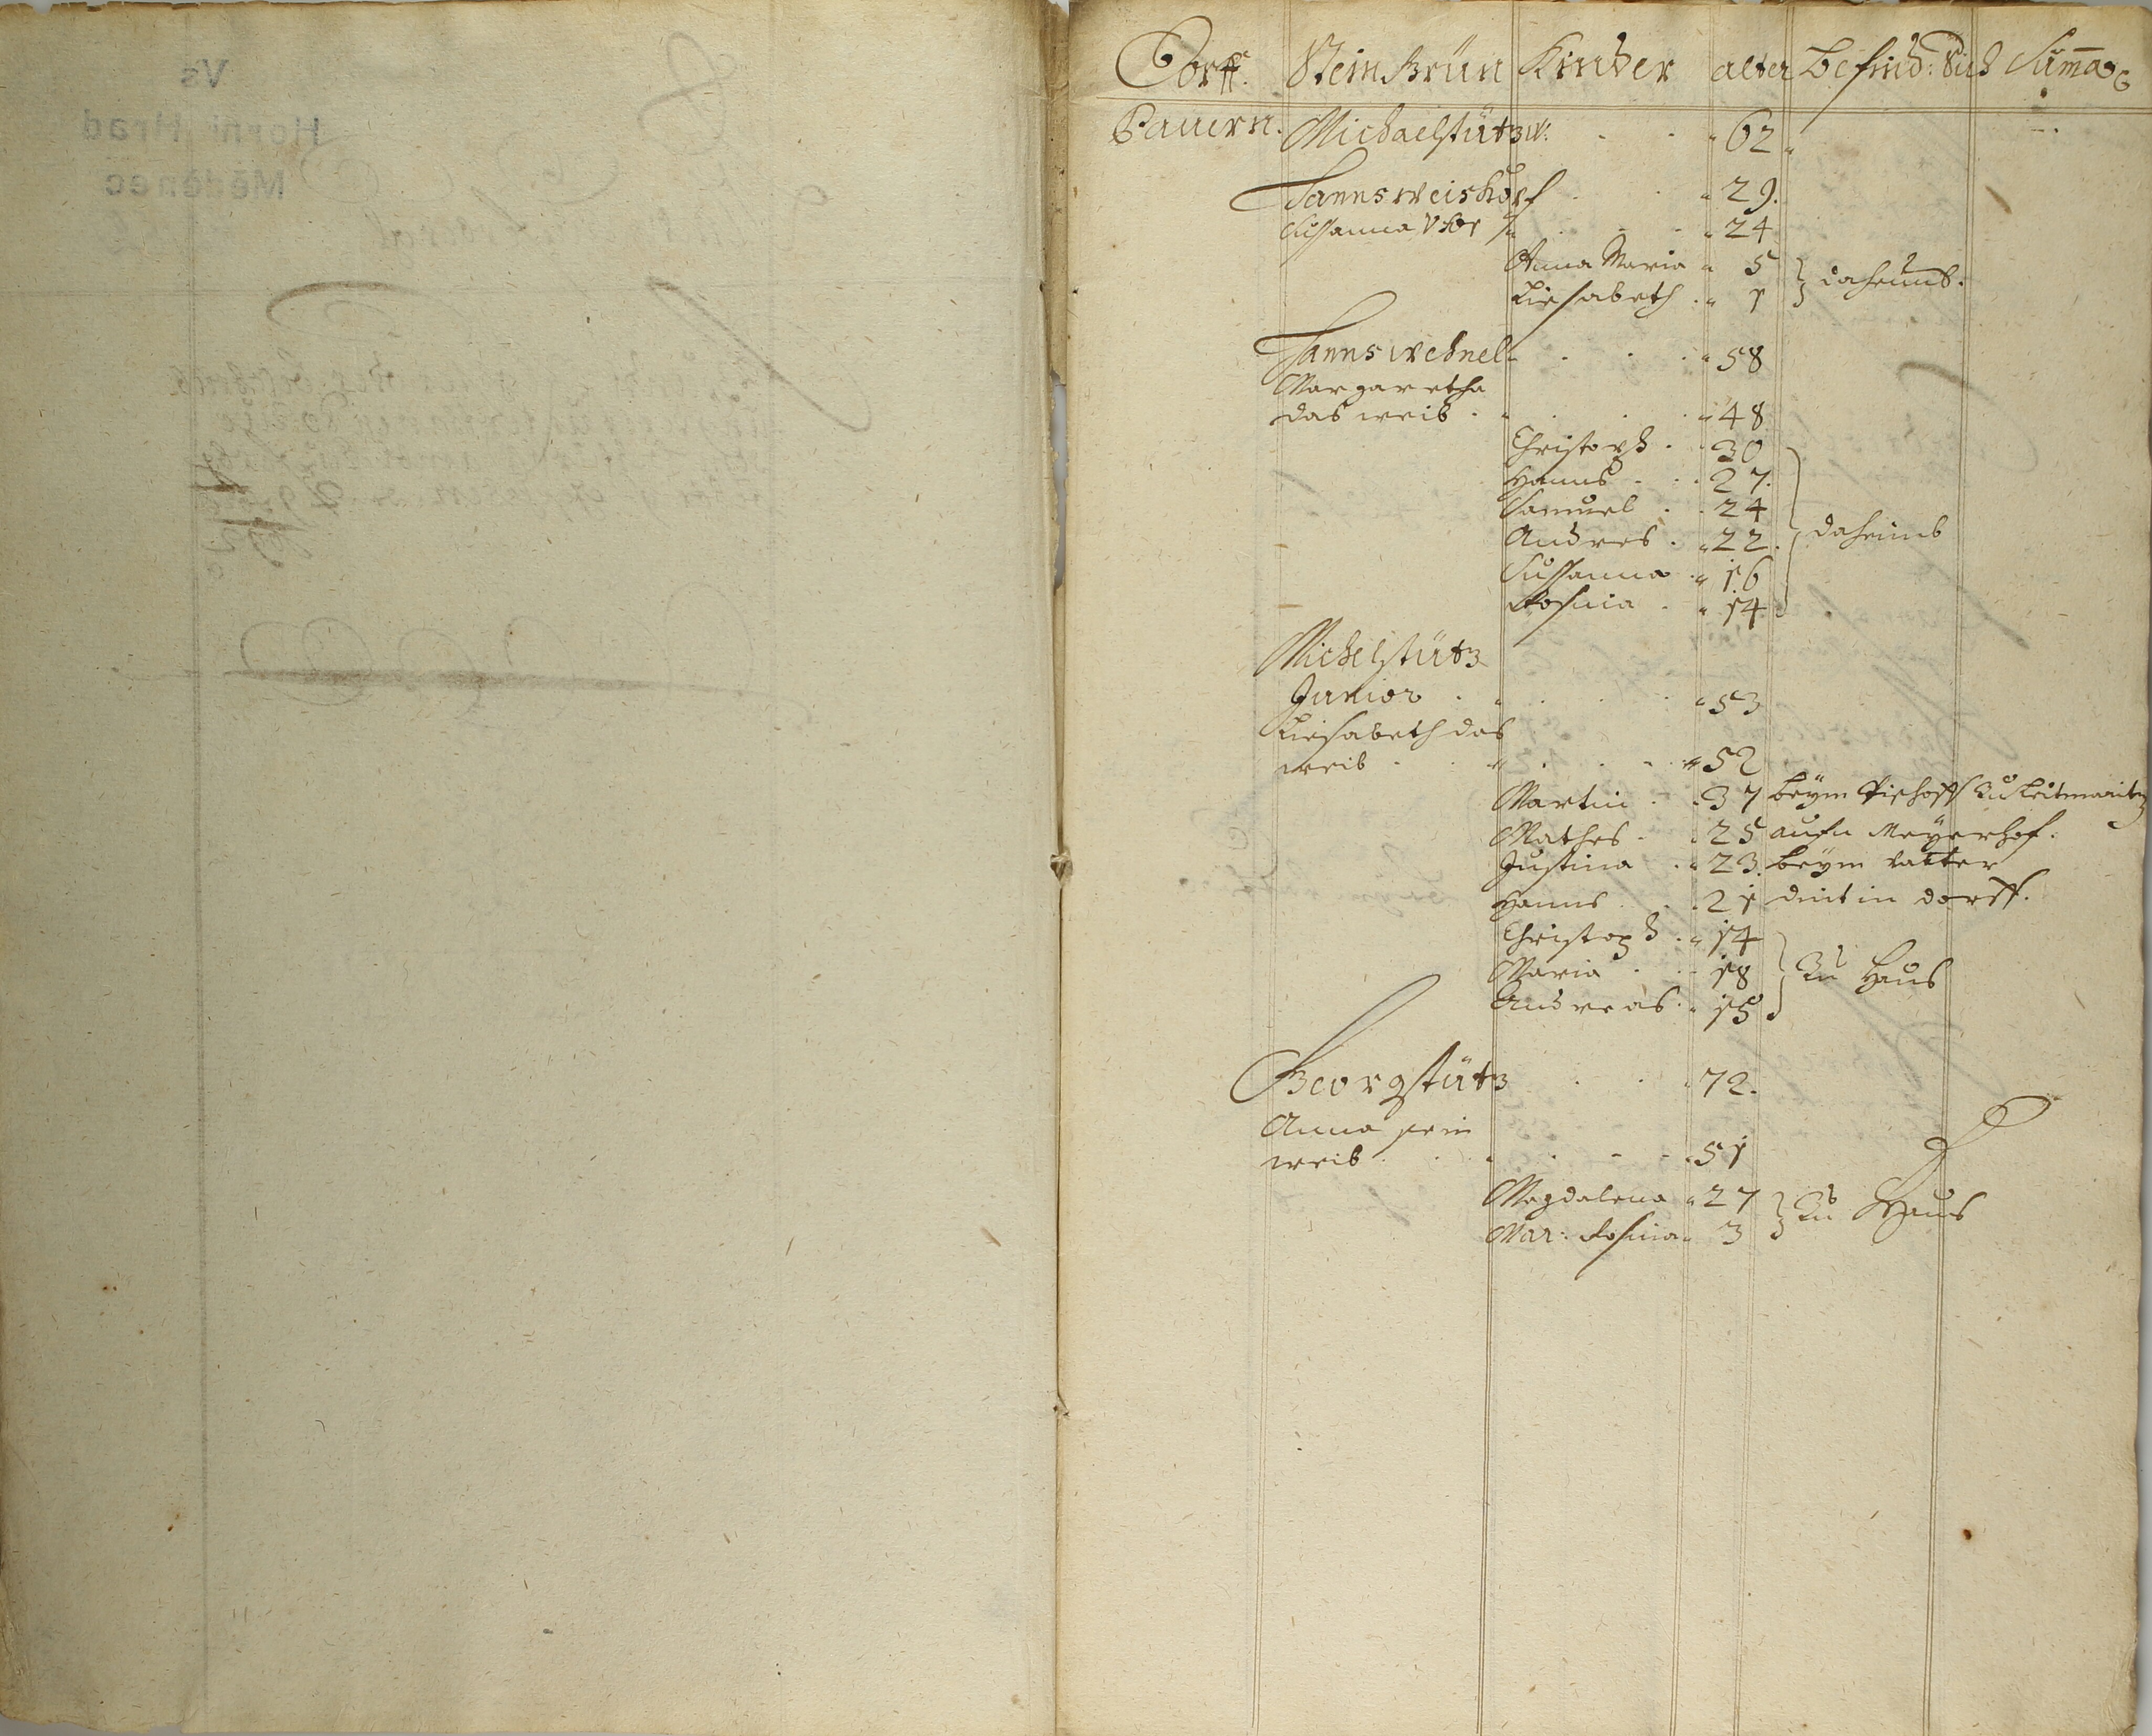 Dorff. Steingrün Kinder alter befind: Sich Suma
Bauern. Michael stütz W: 62
Hanns weiskopf 29.
Susanna Vxor 24
Anna Maria 5
Liesabeth 1 daheimb.
Hanns wehnel 58
Margaretha
das weib 48
Christoph 30
Hanns 27.
Samuel 24
Andres 22. daheimb
Sussanna 16
Rosina 14
Michel stütz
Junior 53
Liesabeth das
weib 52
Martin 37 beÿm Pischoff zu Leitmaritz
Mathes 25 aufn Meÿerhof.
Justina 23. beÿm Vatter
Hanns 21 dint in dorff.
Christoph 14
Maria 18 zu Haus
Andreas 15
Georg stütz 72.
Anna sein
weib 51
Magdalena 27 zu Haus
Mar: Rosina 3